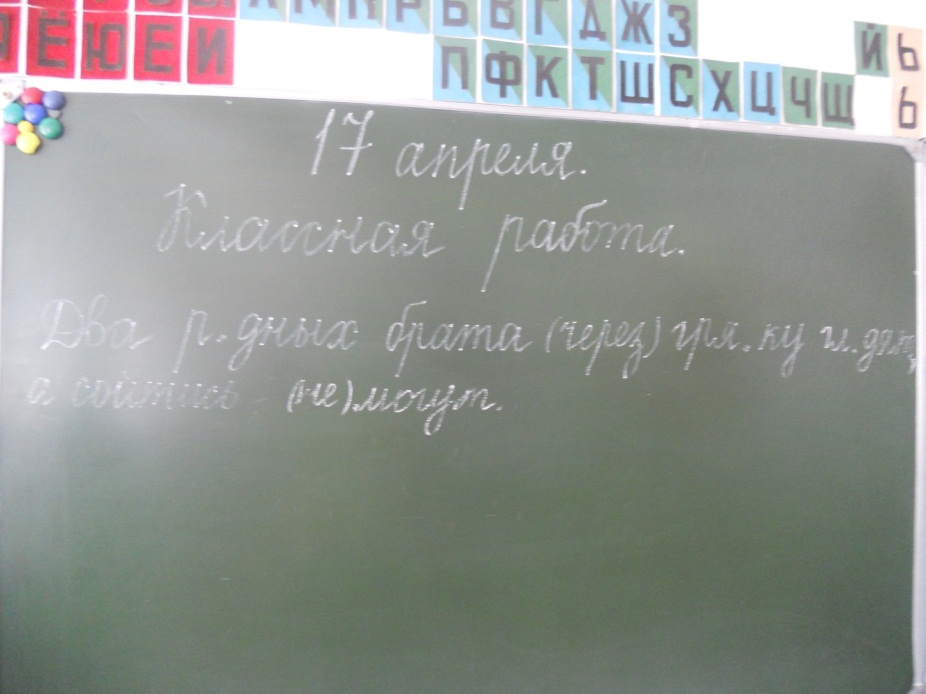 М К Р Ь В Г Д Ж З
Ё Ю Е И П Ф К Т Ш С Х Ц Ч Щ Й Ь
17 апреля.
Классная работа.
Два р.дных брата (через) гря.ку гл.дят,
а сойтись (не)могут.